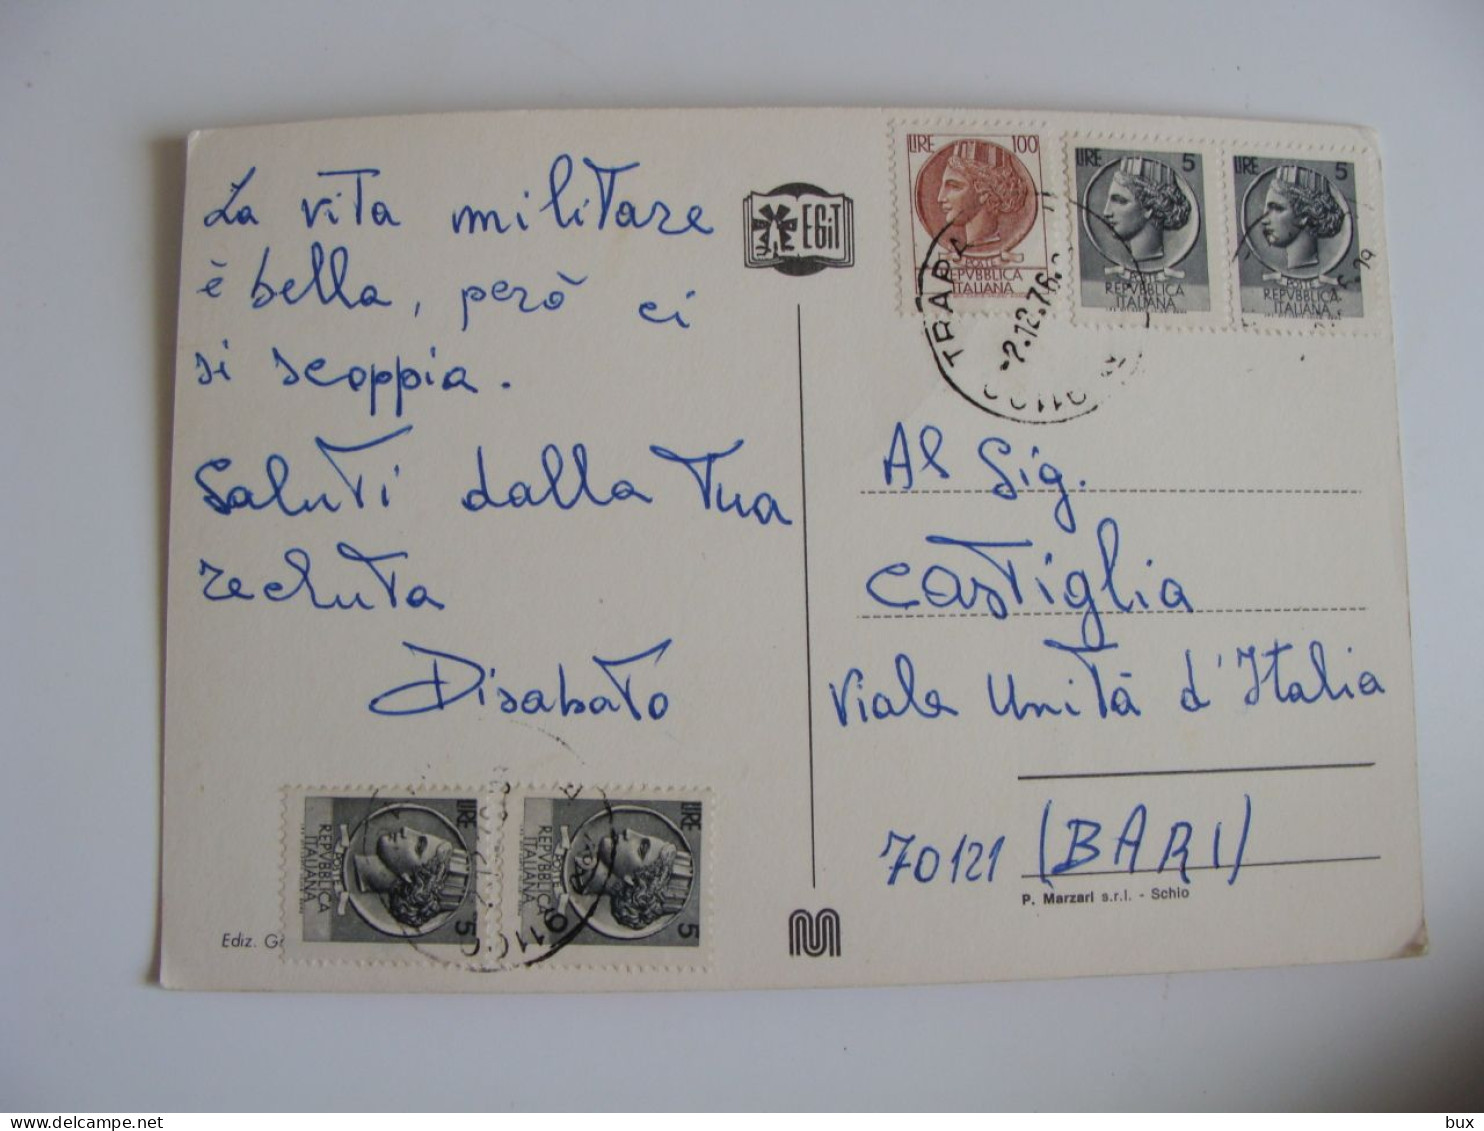 La vita militare
è bella, però ci
si scoppia.
Saluti dalla tua
recluta
Disabato
EGiT
LIRE 100
POSTE
REPVBBLICA
ITALIANA
LIRE 5
POSTE
REPVBBLICA
ITALIANA
LIRE 5
POSTE
REPVBBLICA
ITALIANA
TRAPA
-2.12.76
91100
Al Sig.
Castiglia
Viale Unità d'Italia
70121 (BARI)
P. Marzari s.r.l. - Schio
Ediz. G
LIRE 5
POSTE
REPVBBLICA
ITALIANA
LIRE 5
POSTE
REPVBBLICA
ITALIANA
91100
bux